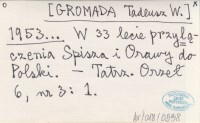 [GROMADA Tadeusz W.]
1953... W 33 lecie przyłą-
czenia Spisza i Orawy do
Polski. — Tatrz. Orzeł
6, nr 3: 1.